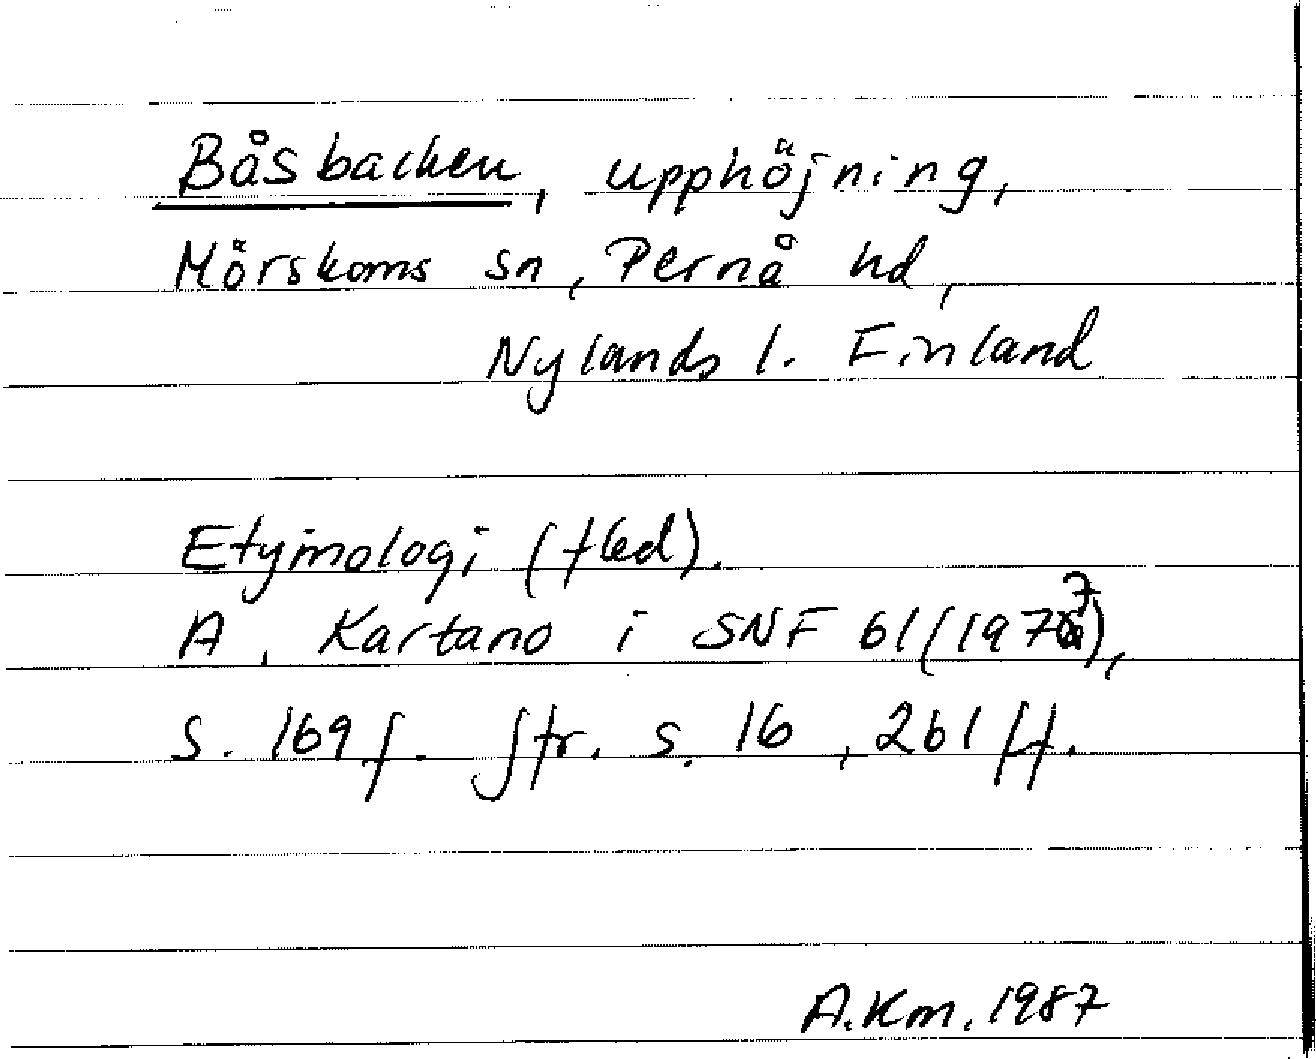 Båsbacken, upphöjning,
Mörskoms sn, Pernå hd,
Nylands l. Finland
Etymologi (fled).
A. Kartano i SNF 61 (1977),
s. 169 f. Jfr. s. 16, 261 ff.
A.Km. 1987